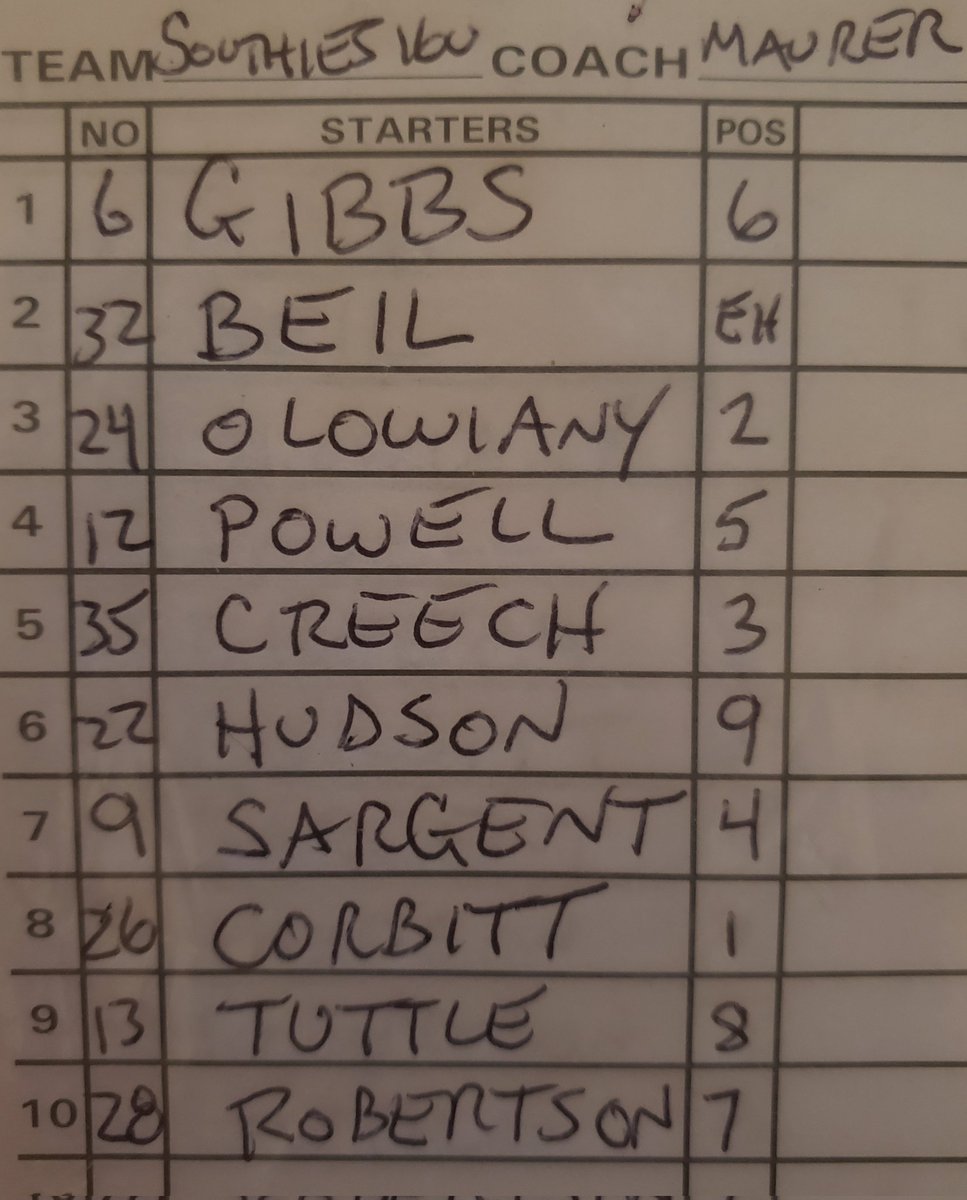 TEAM SOUTHIES 16U COACH MAURER
NO STARTERS POS
1 6 GIBBS 6
2 32 BEIL EH
3 24 OLOWIANY 2
4 12 POWELL 5
5 35 CREECH 3
6 22 HUDSON 9
7 9 SARGENT 4
8 26 CORBITT 1
9 13 TUTTLE 8
10 28 ROBERTSON 7